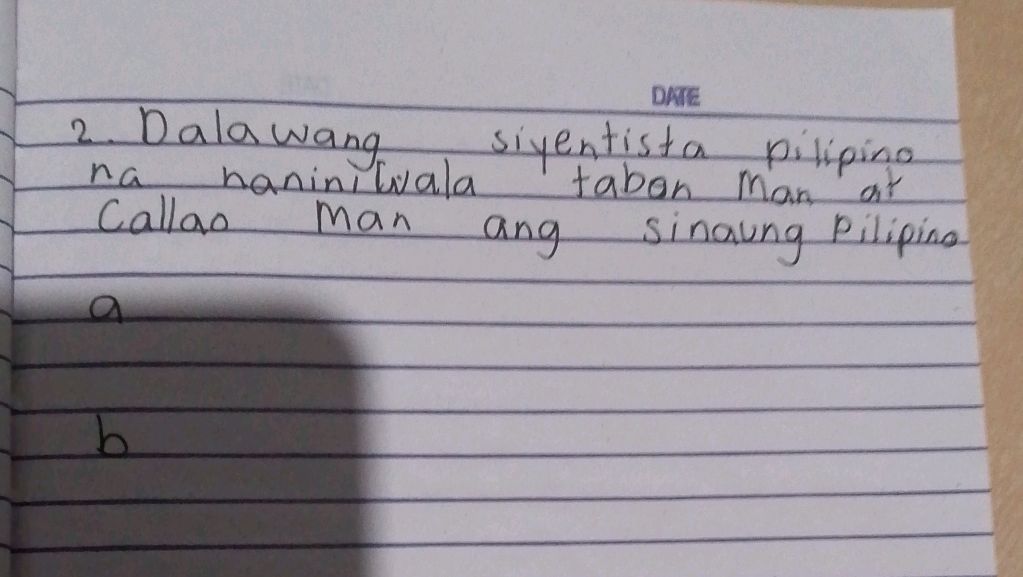 DATE
2. Dalawang siyentista pilipino
na naniniwala taban Man at
Callao Man ang sinaung Pilipino
a
b